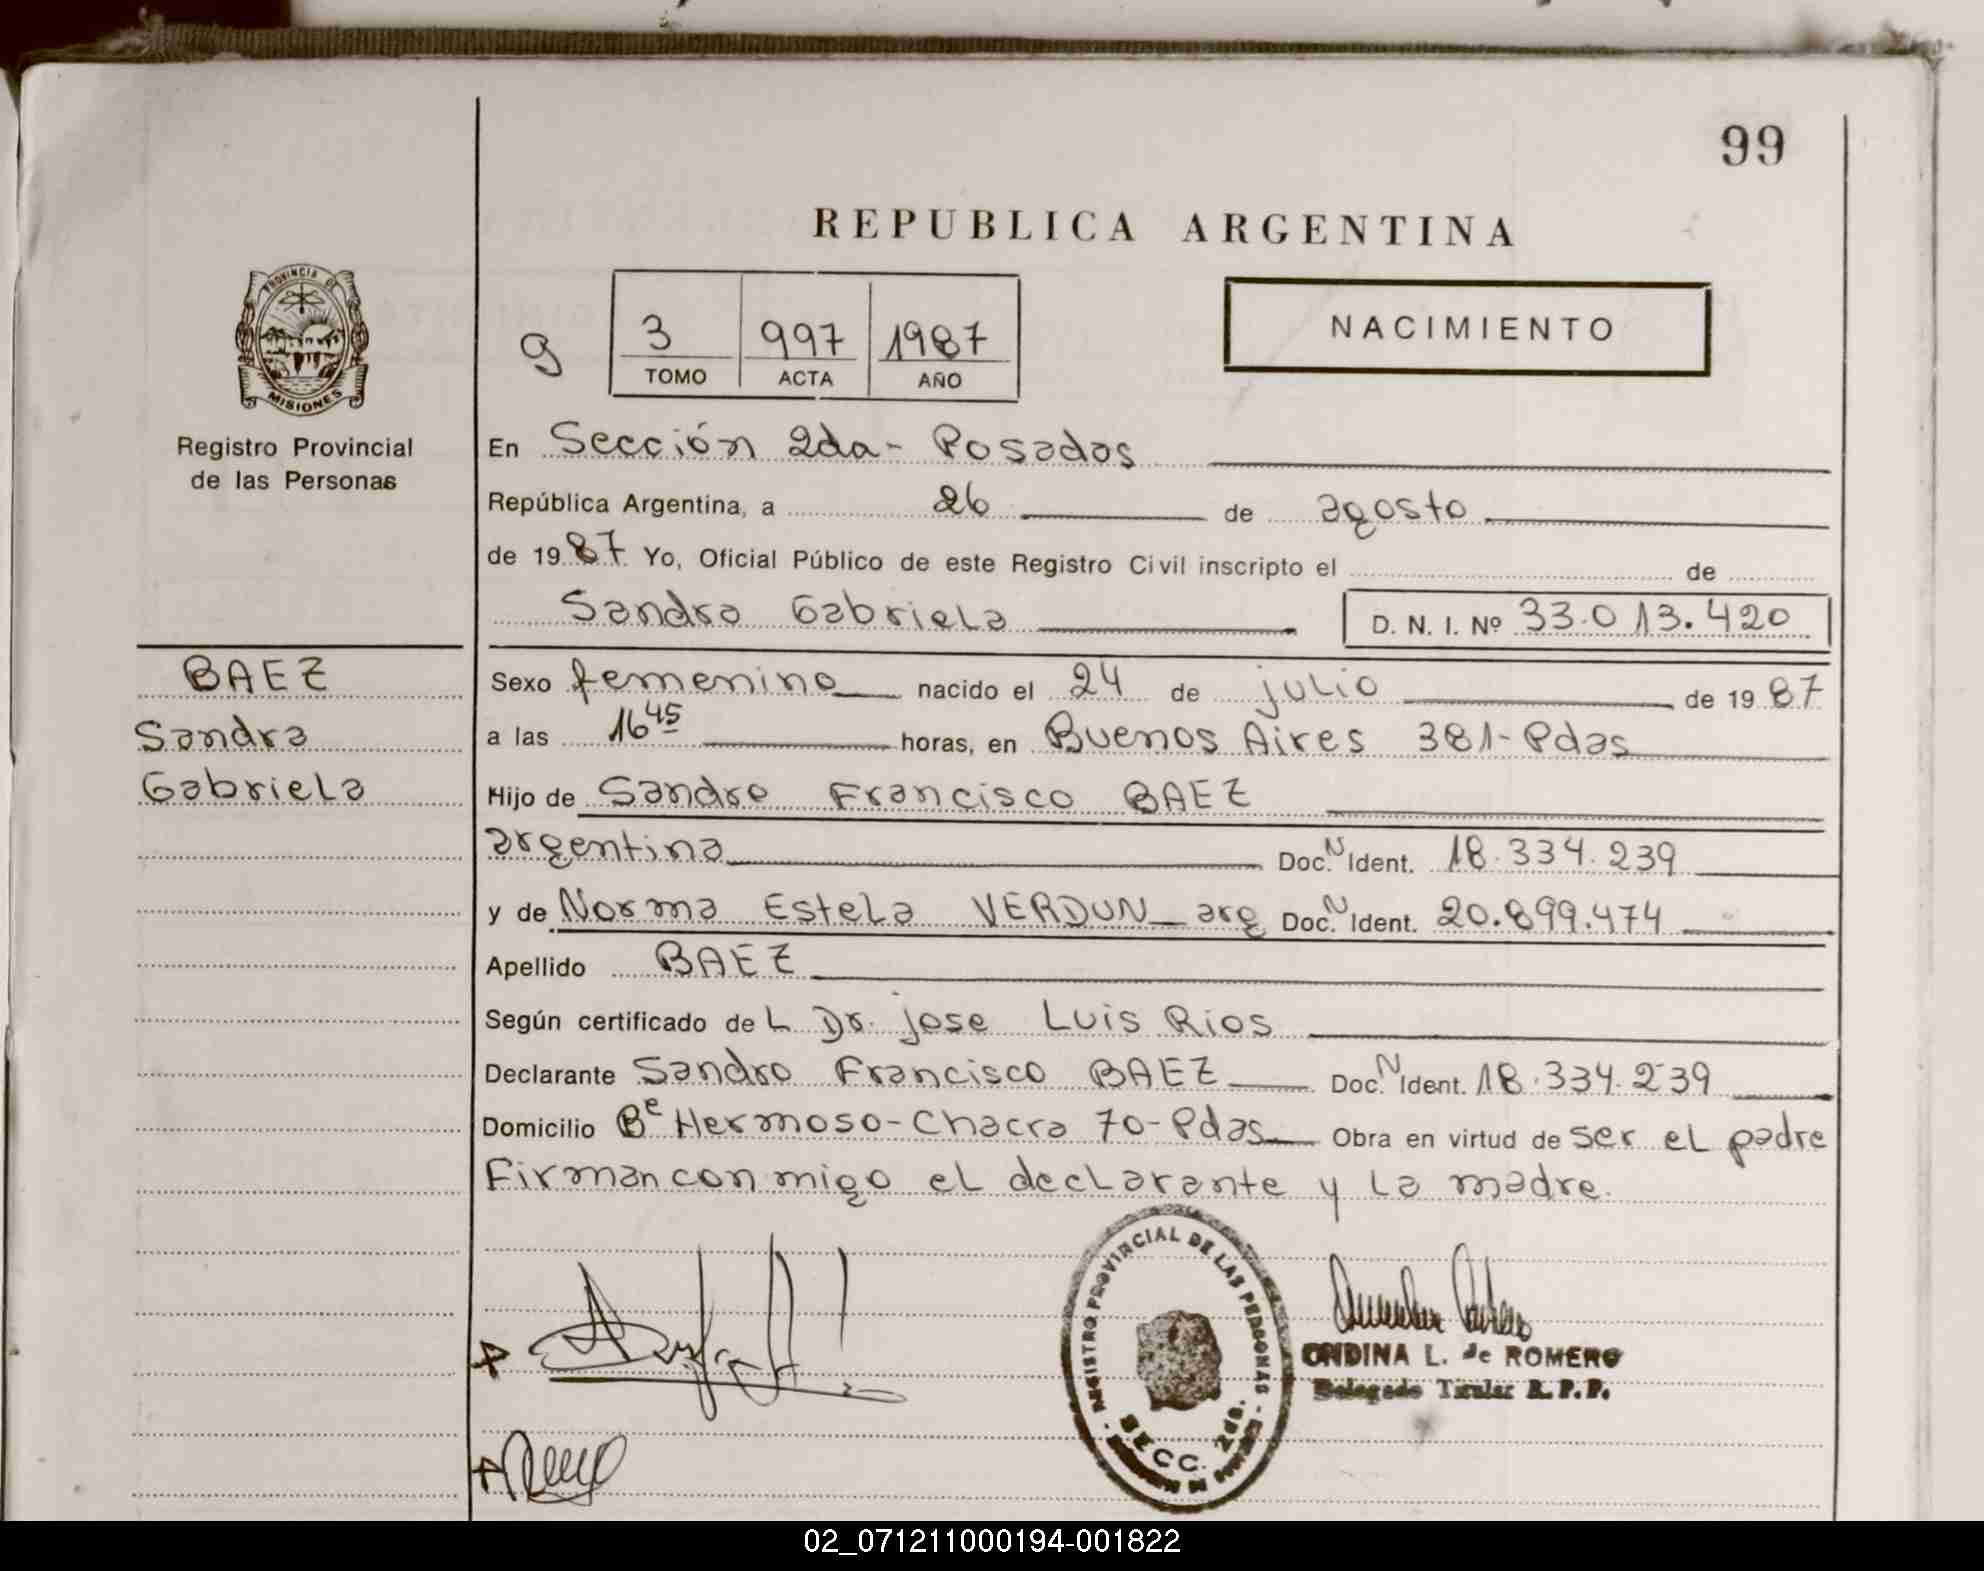 99
REPUBLICA ARGENTINA
PROVINCIA DE
MISIONES
Registro Provincial
de las Personas
9
3 997 1987
TOMO ACTA AÑO
NACIMIENTO
En Sección 2da - Posadas
República Argentina, a 26 de agosto
de 1987 Yo, Oficial Público de este Registro Civil inscripto el de
Sandra Gabriela D. N. I. Nº 33.013.420
BAEZ
Sandra
Gabriela
Sexo femenino nacido el 24 de julio de 1987
a las 16 45 horas, en Buenos Aires 381 - Pdas
Hijo de Sandro Francisco BAEZ
argentina Doc. N Ident. 18.334.239
y de Norma Estela VERDUN arg Doc. N Ident. 20.899.474
Apellido BAEZ
Según certificado del Dr. jose Luis Rios
Declarante Sandro Francisco BAEZ Doc. N Ident. 18.334.239
Domicilio Be Hermoso - Chacra 70 - Pdas Obra en virtud de ser el padre
Firman con migo el declarante y la madre.
REGISTRO PROVINCIAL DE LAS PERSONAS
SECC. 2da.
ONDINA L. de ROMERO
Delegado Titular R. P. P.
02_071211000194-001822